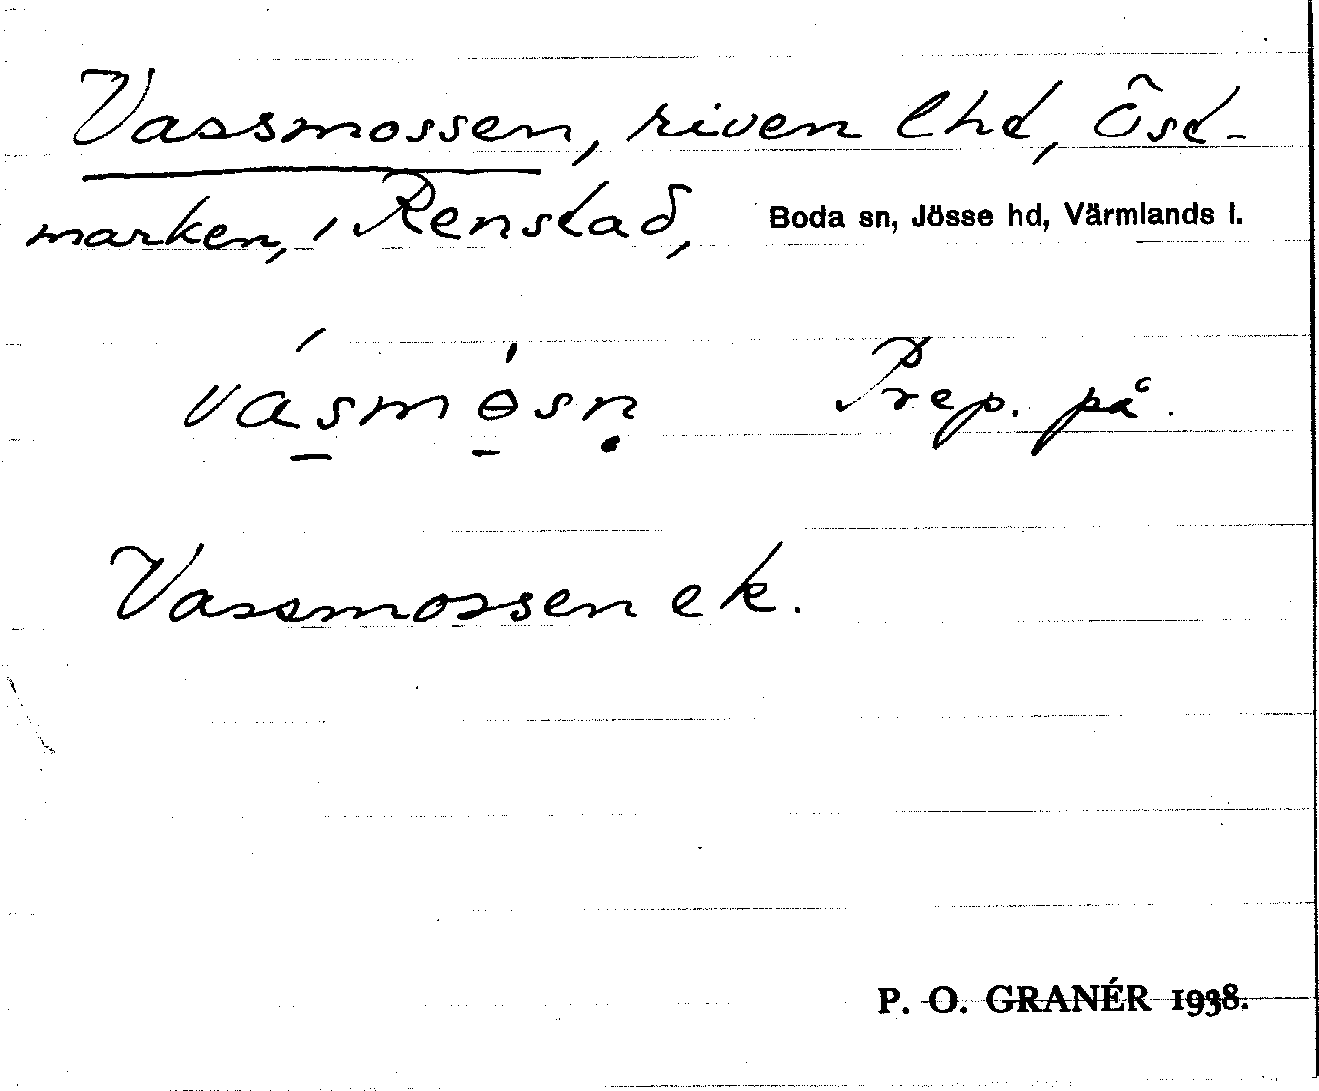 Vassmossen, riven lhd, Öst-
marken, i Renstad, Boda sn, Jösse hd, Värmlands l.
vásmɵ̀sn̥ Prep. på.
Vassmossen ek.
P. O. GRANÉR 1938.